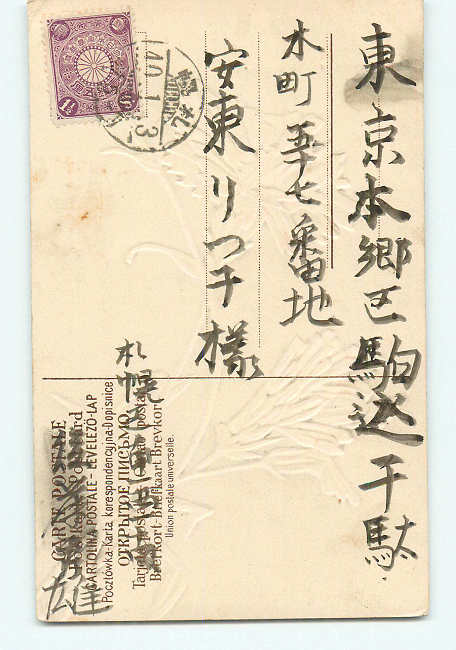 東京本郷区駒込千駄
木町五十七番地
安東りつ子様
札幌
雄
札幌
40
1
3
CARTE POSTALE
CARTOLINA POSTALE - LEVELEZÖ-LAP
Pocztówka-Karta korespondencyjna-Dopisnice
ОТКРЫТОЕ ПИСЬМО
Brefkort-Briefkaart Brevkort
Union postale universelle.